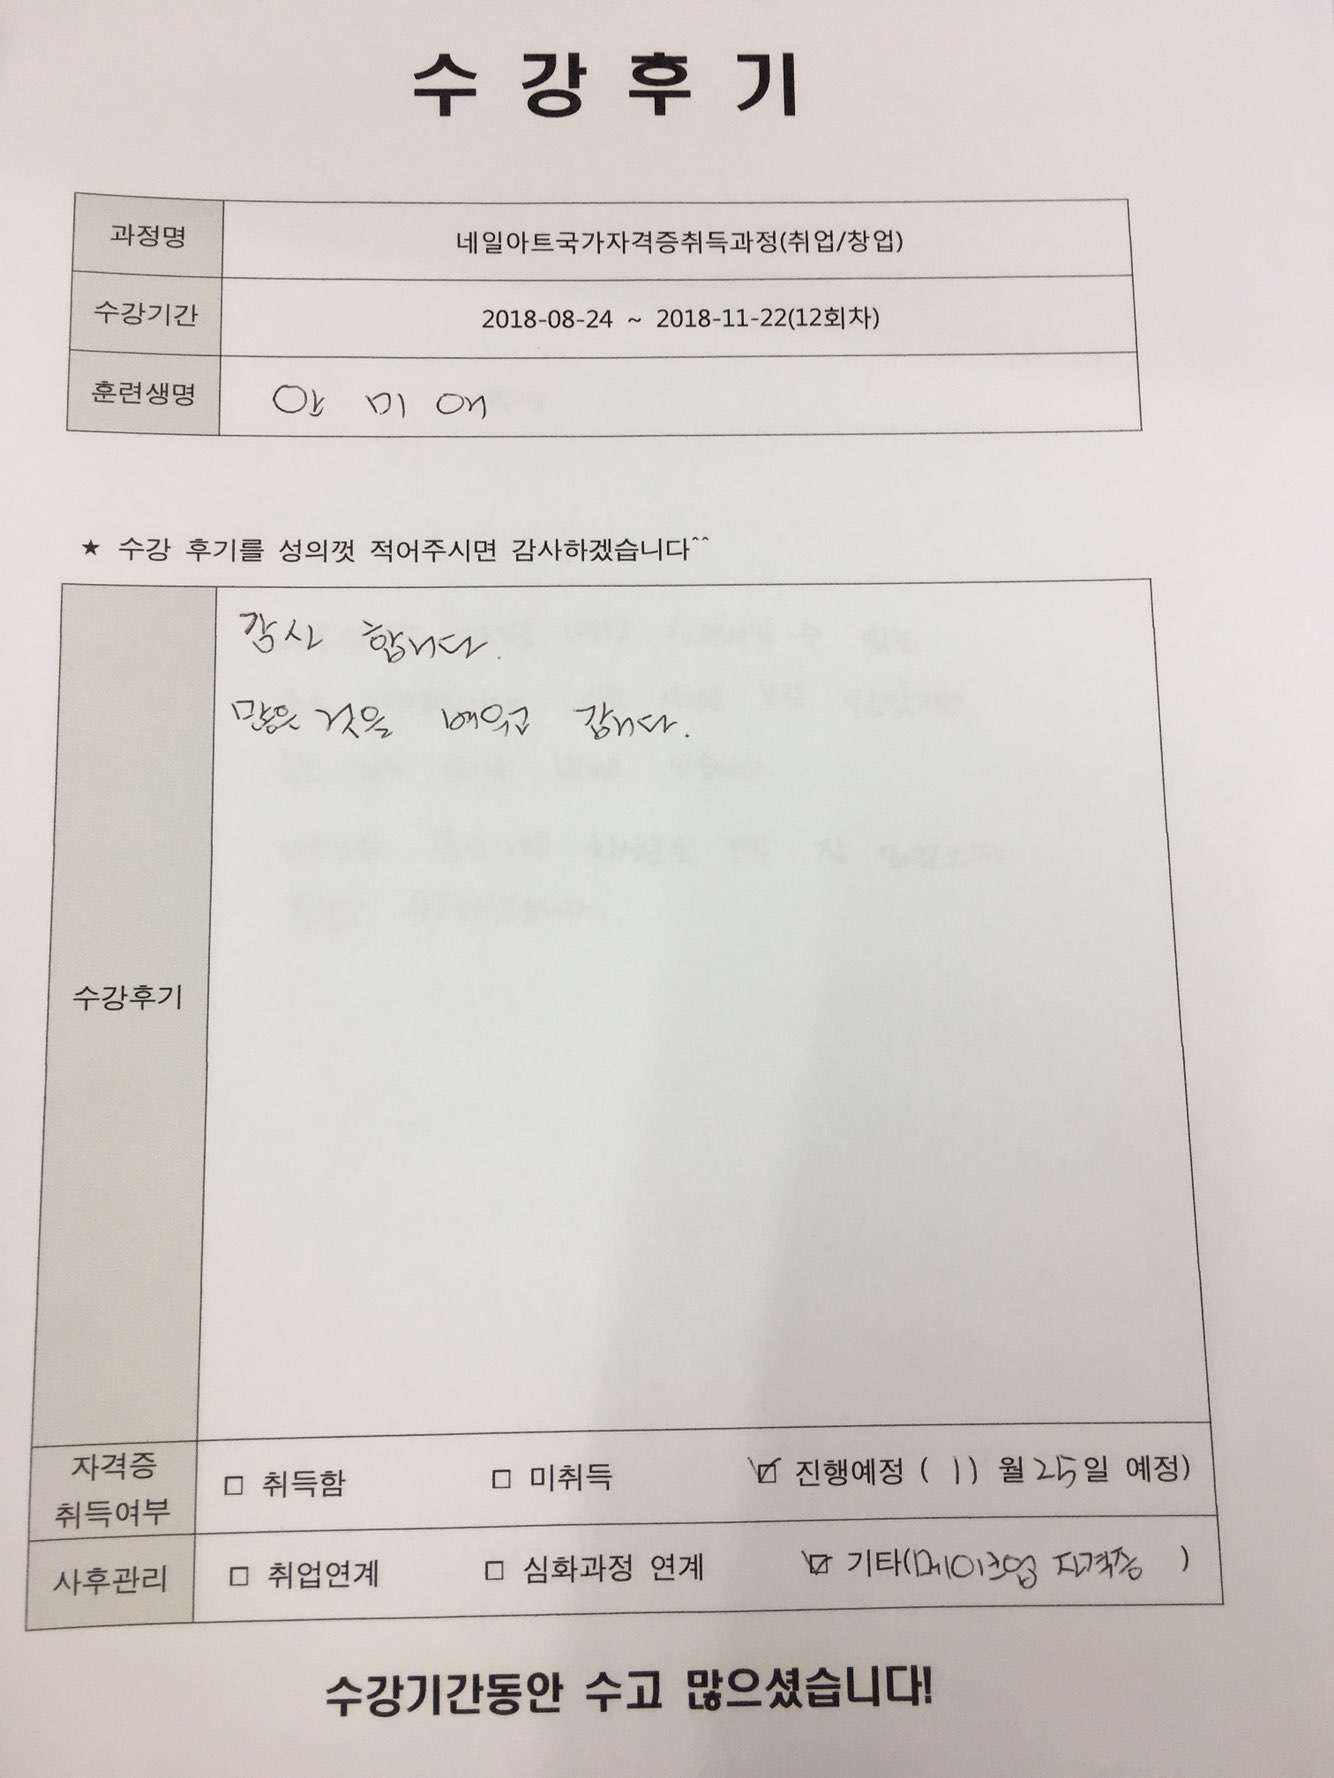 수강후기
과정명 네일아트국가자격증취득과정(취업/창업)
수강기간 2018-08-24 ~ 2018-11-22(12회차)
훈련생명 미애
★ 수강 후기를 성의껏 적어주시면 감사하겠습니다^^
감사 합니다.
많은 것을 배우고 갑니다.
수강후기
자격증 취득여부 □ 취득함 □ 미취득 ☑ 진행예정 ( 11 월 25일 예정)
사후관리 □ 취업연계 □ 심화과정 연계 ☑ 기타(메이크업 자격증 )
수강기간동안 수고 많으셨습니다!